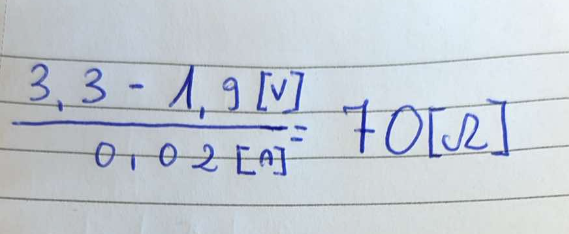 3,3 - 1,9 [V]
0,02 [A]
= 70 [Ω]